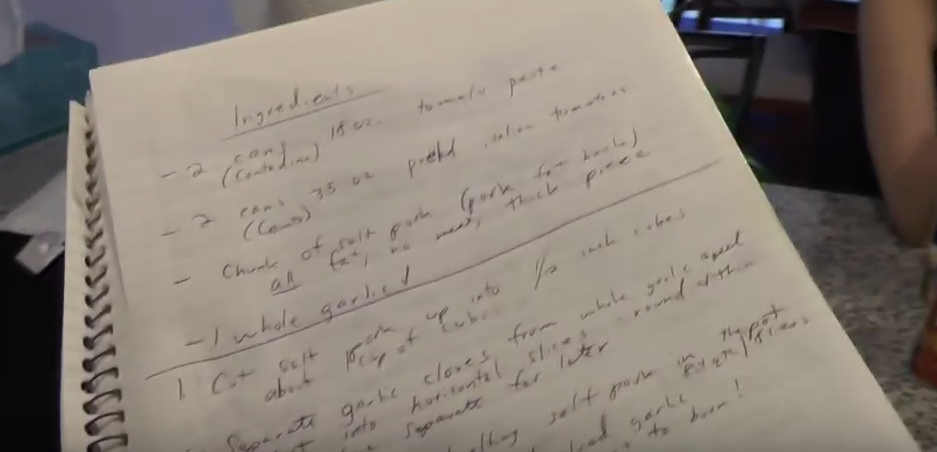 Ingredients
- 2 cans 18 oz. tomato paste
(Contadina)
- 2 cans 35 oz peeled italian tomatoes
(Cento)
- Chunk of salt pork (pork fat back)
all fat, no meat, thick piece
- 1 whole garlic
1. Cut salt pork up into 1/2 inch cubes
about cup of cubes
Separate garlic cloves from whole garlic & peel
into horizontal slices - round & thin
separate for later
salt pork in the pot
garlic slices
to burn!